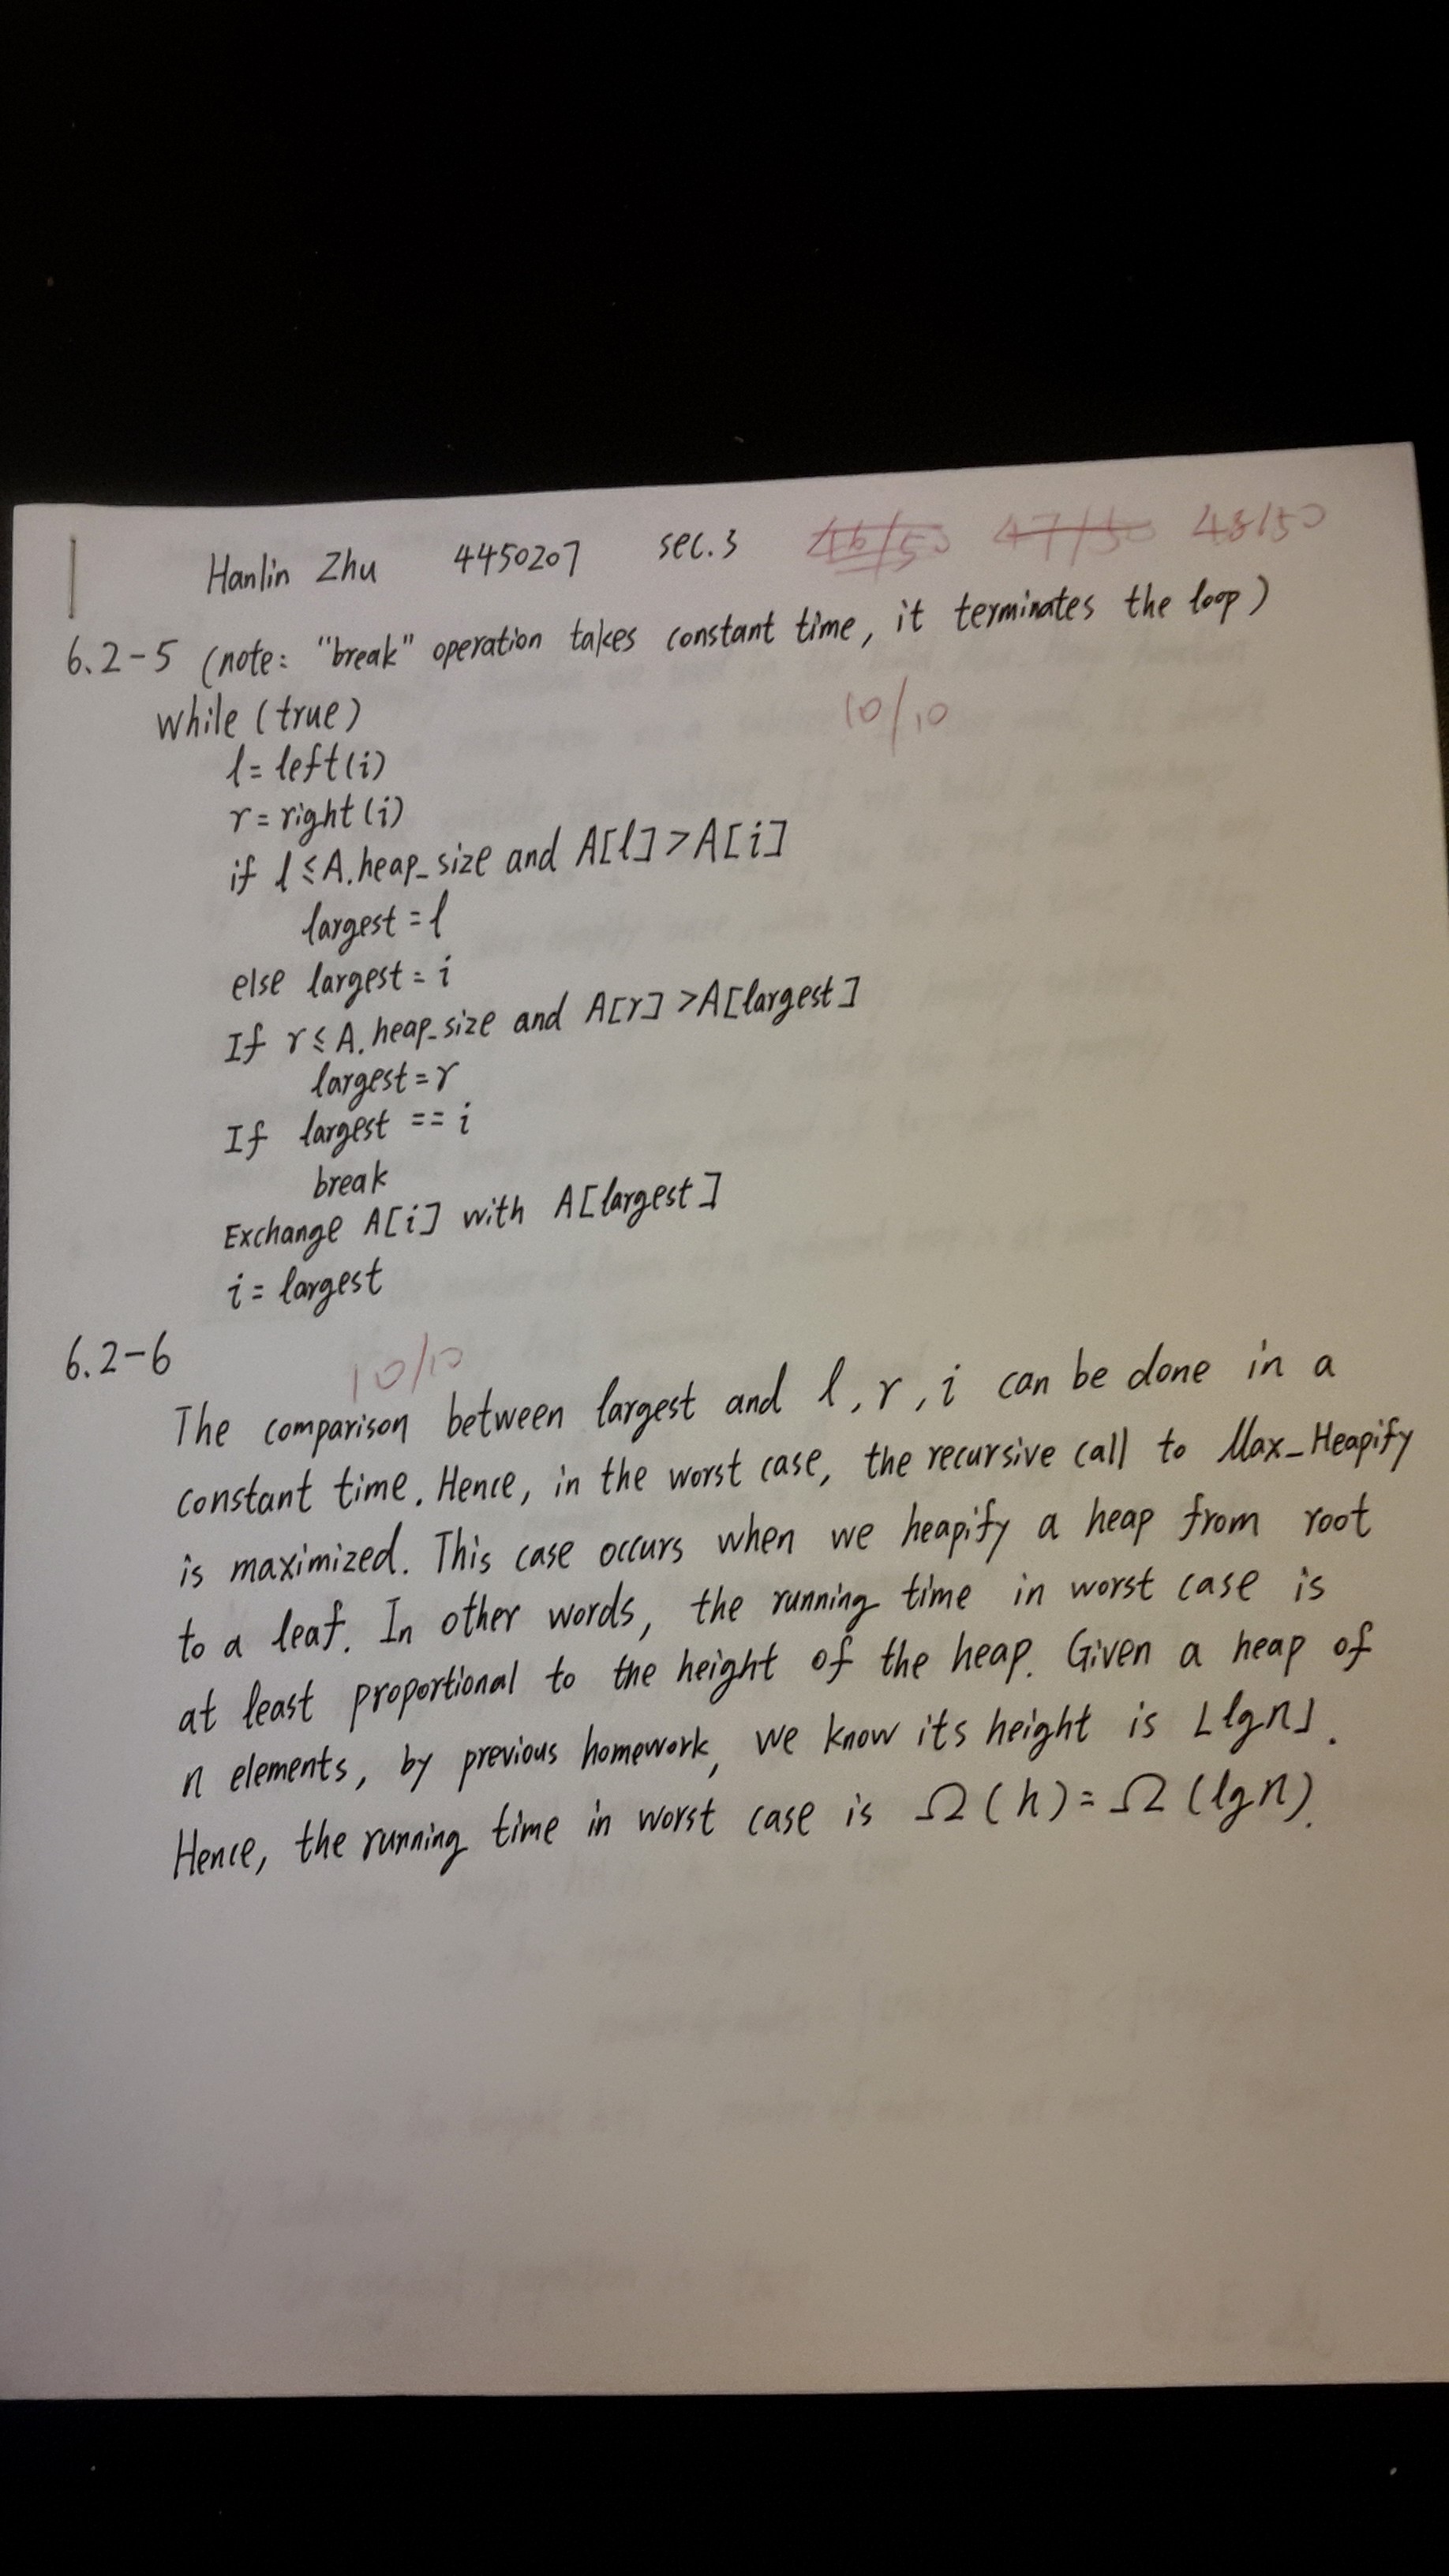 Hanlin Zhu 4450207 sec.3 46/50 47/50 48/50
6.2-5 (note: "break" operation takes constant time, it terminates the loop)
while (true)
10/10
l = left(i)
r = right(i)
if l ≤ A.heap_size and A[l] > A[i]
largest = l
else largest = i
If r ≤ A.heap_size and A[r] > A[largest]
largest = r
If largest == i
break
Exchange A[i] with A[largest]
i = largest
6.2-6
10/10
The comparison between largest and l, r, i can be done in a
constant time. Hence, in the worst case, the recursive call to Max_Heapify
is maximized. This case occurs when we heapify a heap from root
to a leaf. In other words, the running time in worst case is
at least proportional to the height of the heap. Given a heap of
n elements, by previous homework, we know its height is ⌊lgn⌋.
Hence, the running time in worst case is Ω(h) = Ω(lgn).